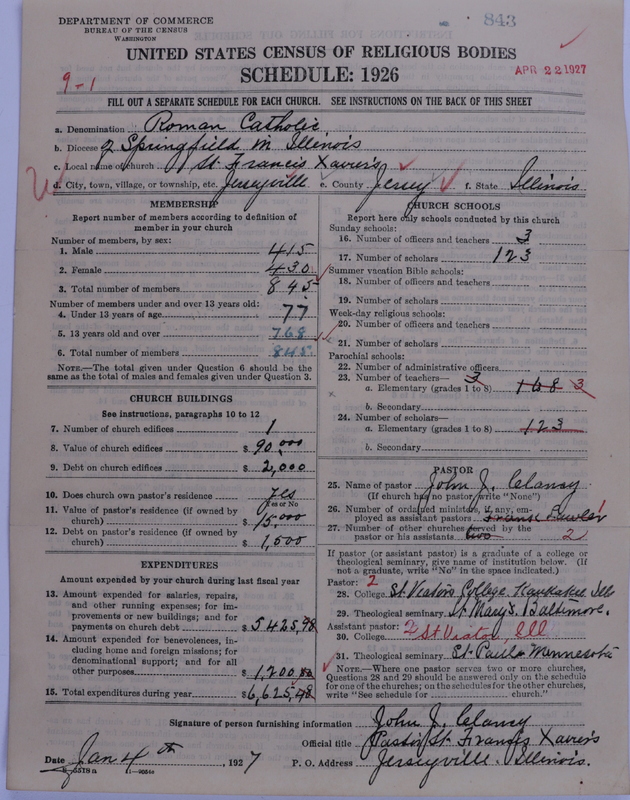 843
DEPARTMENT OF COMMERCE
BUREAU OF THE CENSUS
WASHINGTON
UNITED STATES CENSUS OF RELIGIOUS BODIES
SCHEDULE: 1926
APR 22 1927
9-1
FILL OUT A SEPARATE SCHEDULE FOR EACH CHURCH. SEE INSTRUCTIONS ON THE BACK OF THIS SHEET
a. Denomination Roman Catholic
b. Diocese of Springfield in Illinois
c. Local name of church St. Francis Xavier's
d. City, town, village, or township, etc. Jerseyville e. County Jersey f. State Illinois
MEMBERSHIP
Report number of members according to definition of
member in your church
Number of members, by sex:
1. Male 415
2. Female 430
3. Total number of members 845
Number of members under and over 13 years old:
4. Under 13 years of age 77
5. 13 years old and over 768
6. Total number of members 845
NOTE.—The total given under Question 6 should be
same as the total of males and females given under Question 3.
CHURCH BUILDINGS
See instructions, paragraphs 10 to 12
7. Number of church edifices 1
8. Value of church edifices $ 90,000
9. Debt on church edifices $ 2,000
10. Does church own pastor's residence yes
Yes or No
11. Value of pastor's residence (if owned by
church) $ 15,000
12. Debt on pastor's residence (if owned by
church) $ 1,500
EXPENDITURES
Amount expended by your church during last fiscal year
13. Amount expended for salaries, repairs,
and other running expenses; for im-
provements or new buildings; and for
payments on church debt $ 5425,98
14. Amount expended for benevolences, in-
cluding home and foreign missions; for
denominational support; and for all
other purposes $ 1,200
15. Total expenditures during year $ 6,625,98
CHURCH SCHOOLS
Report here only schools conducted by this church
Sunday schools:
16. Number of officers and teachers 3
17. Number of scholars 123
Summer vacation Bible schools:
18. Number of officers and teachers
19. Number of scholars
Week-day religious schools:
20. Number of officers and teachers
21. Number of scholars
Parochial schools:
22. Number of administrative officers
23. Number of teachers— 3
a. Elementary (grades 1 to 8) 168 3
b. Secondary
24. Number of scholars—
a. Elementary (grades 1 to 8) 123
b. Secondary
PASTOR
25. Name of pastor John J. Clancy
(If church has no pastor, write "None")
26. Number of ordained ministers, if any, em-
ployed as assistant pastors 1
27. Number of other churches served by the
pastor or his assistants two 2
If pastor (or assistant pastor) is a graduate of a college or
theological seminary, give name of institution below. (If
not a graduate, write "No" in the space indicated.)
Pastor: 2
28. College St. Viator College Kankakee Ills
29. Theological seminary St. Mary's Baltimore.
Assistant pastor: 2
30. College St Viator, Ill
31. Theological seminary St. Paul Minnesota
NOTE.—Where one pastor serves two or more churches,
Questions 28 and 29 should be answered only on the schedule
for one of the churches; on the schedules for the other churches,
write "See schedule for church."
Signature of person furnishing information John J. Clancy
Official title Pastor St. Francis Xavier's
Date Jan 4th, 1927 P. O. Address Jerseyville. Illinois.